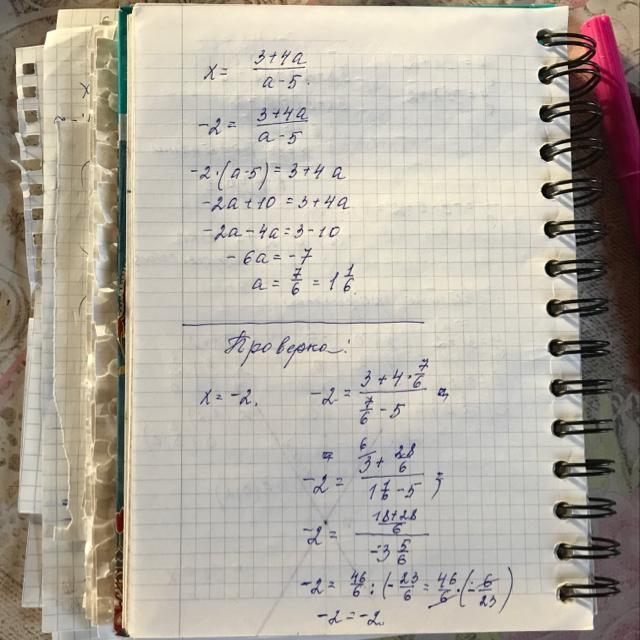 x = (3+4a)/(a-5).
-2 = (3+4a)/(a-5)
-2·(a-5) = 3+4a
-2a+10 = 3+4a
-2a-4a = 3-10
-6a = -7
a = 7/6 = 1 1/6.
Проверка:
x = -2. -2 = (3+4·7/6)/(7/6-5)
-2 = (3+28/6)/(1 1/6-5);
-2 = ((18+28)/6)/(-3 5/6)
-2 = 46/6 : (-23/6 = 46/6·(-6/23)
-2 = -2.